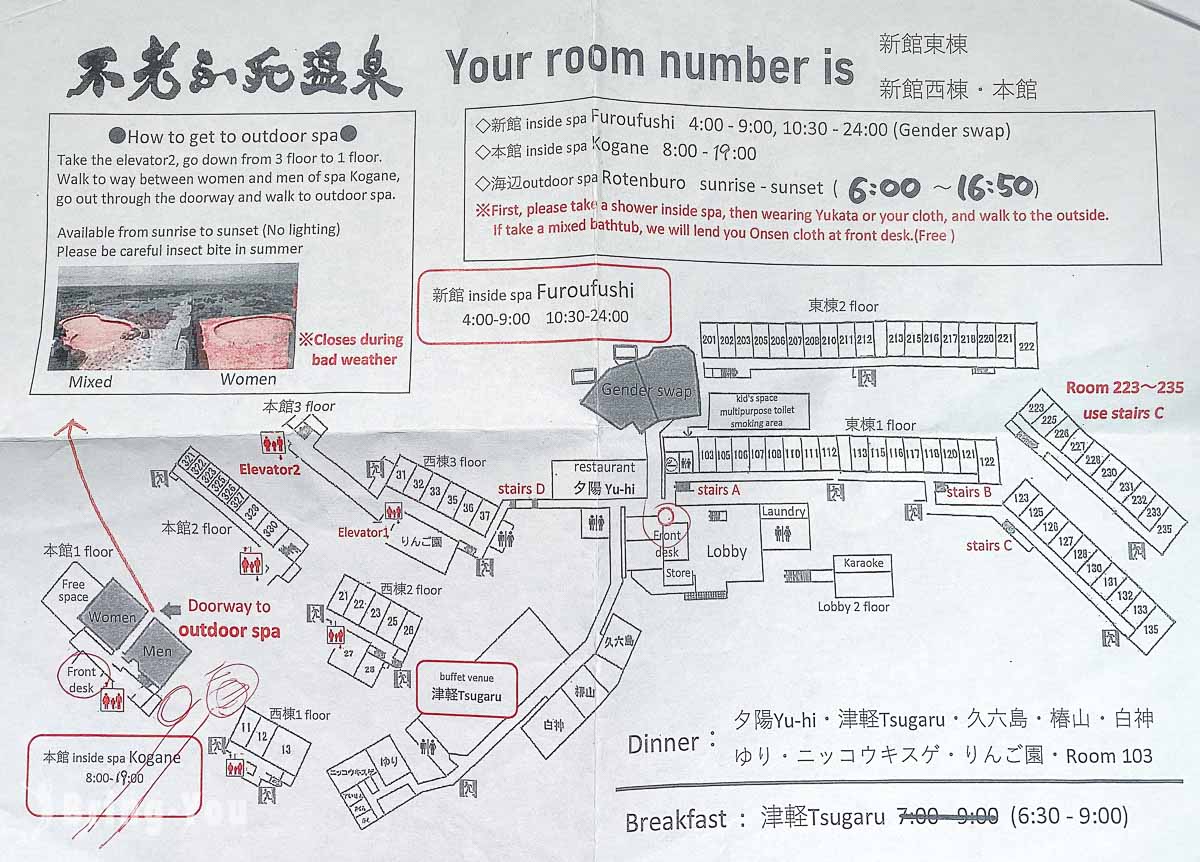 不老ふ死温泉
Your room number is
新館東棟
新館西棟・本館
●How to get to outdoor spa●
Take the elevator2, go down from 3 floor to 1 floor.
Walk to way between women and men of spa Kogane,
go out through the doorway and walk to outdoor spa.
Available from sunrise to sunset (No lighting)
Please be careful insect bite in summer
※Closes during
bad weather
Mixed
Women
◇新館 inside spa Furoufushi 4:00 - 9:00, 10:30 - 24:00 (Gender swap)
◇本館 inside spa Kogane 8:00 - 19:00
◇海辺outdoor spa Rotenburo sunrise - sunset ( 6:00 ～16:50)
※First, please take a shower inside spa, then wearing Yukata or your cloth, and walk to the outside.
If take a mixed bathtub, we will lend you Onsen cloth at front desk.(Free )
新館 inside spa Furoufushi
4:00-9:00 10:30-24:00
東棟2 floor
201 202 203 205 206 207 208 210 211 212 213 215 216 217 218 220 221 222
Gender swap
kid's space
multipurpose toilet
smoking area
Room 223～235
use stairs C
223 225 226 227 228 230 231 232 233 235
東棟1 floor
103 105 106 107 108 110 111 112 113 115 116 117 118 120 121 122
本館3 floor
Elevator2
西棟3 floor
31 32 33 35 36 37
Elevator1
りんご園
stairs D
restaurant
夕陽 Yu-hi
stairs A
stairs B
stairs C
123 125 126 127 128 130 131 132 133 135
Front
desk
Store
Lobby
Laundry
Karaoke
Lobby 2 floor
328 330
本館2 floor
本館1 floor
Free
space
Women
Men
Doorway to
outdoor spa
Front
desk
西棟2 floor
21 22 23 25 26
27 28
buffet venue
津軽Tsugaru
久六島
椿山
白神
西棟1 floor
11 12 13
本館 inside spa Kogane
8:00-19:00
ニッコウキスゲ
ゆり
Dinner：
夕陽Yu-hi・津軽Tsugaru・久六島・椿山・白神
ゆり・ニッコウキスゲ・りんご園・Room 103
Breakfast： 津軽Tsugaru 7:00 - 9:00 (6:30 - 9:00)
Bring You